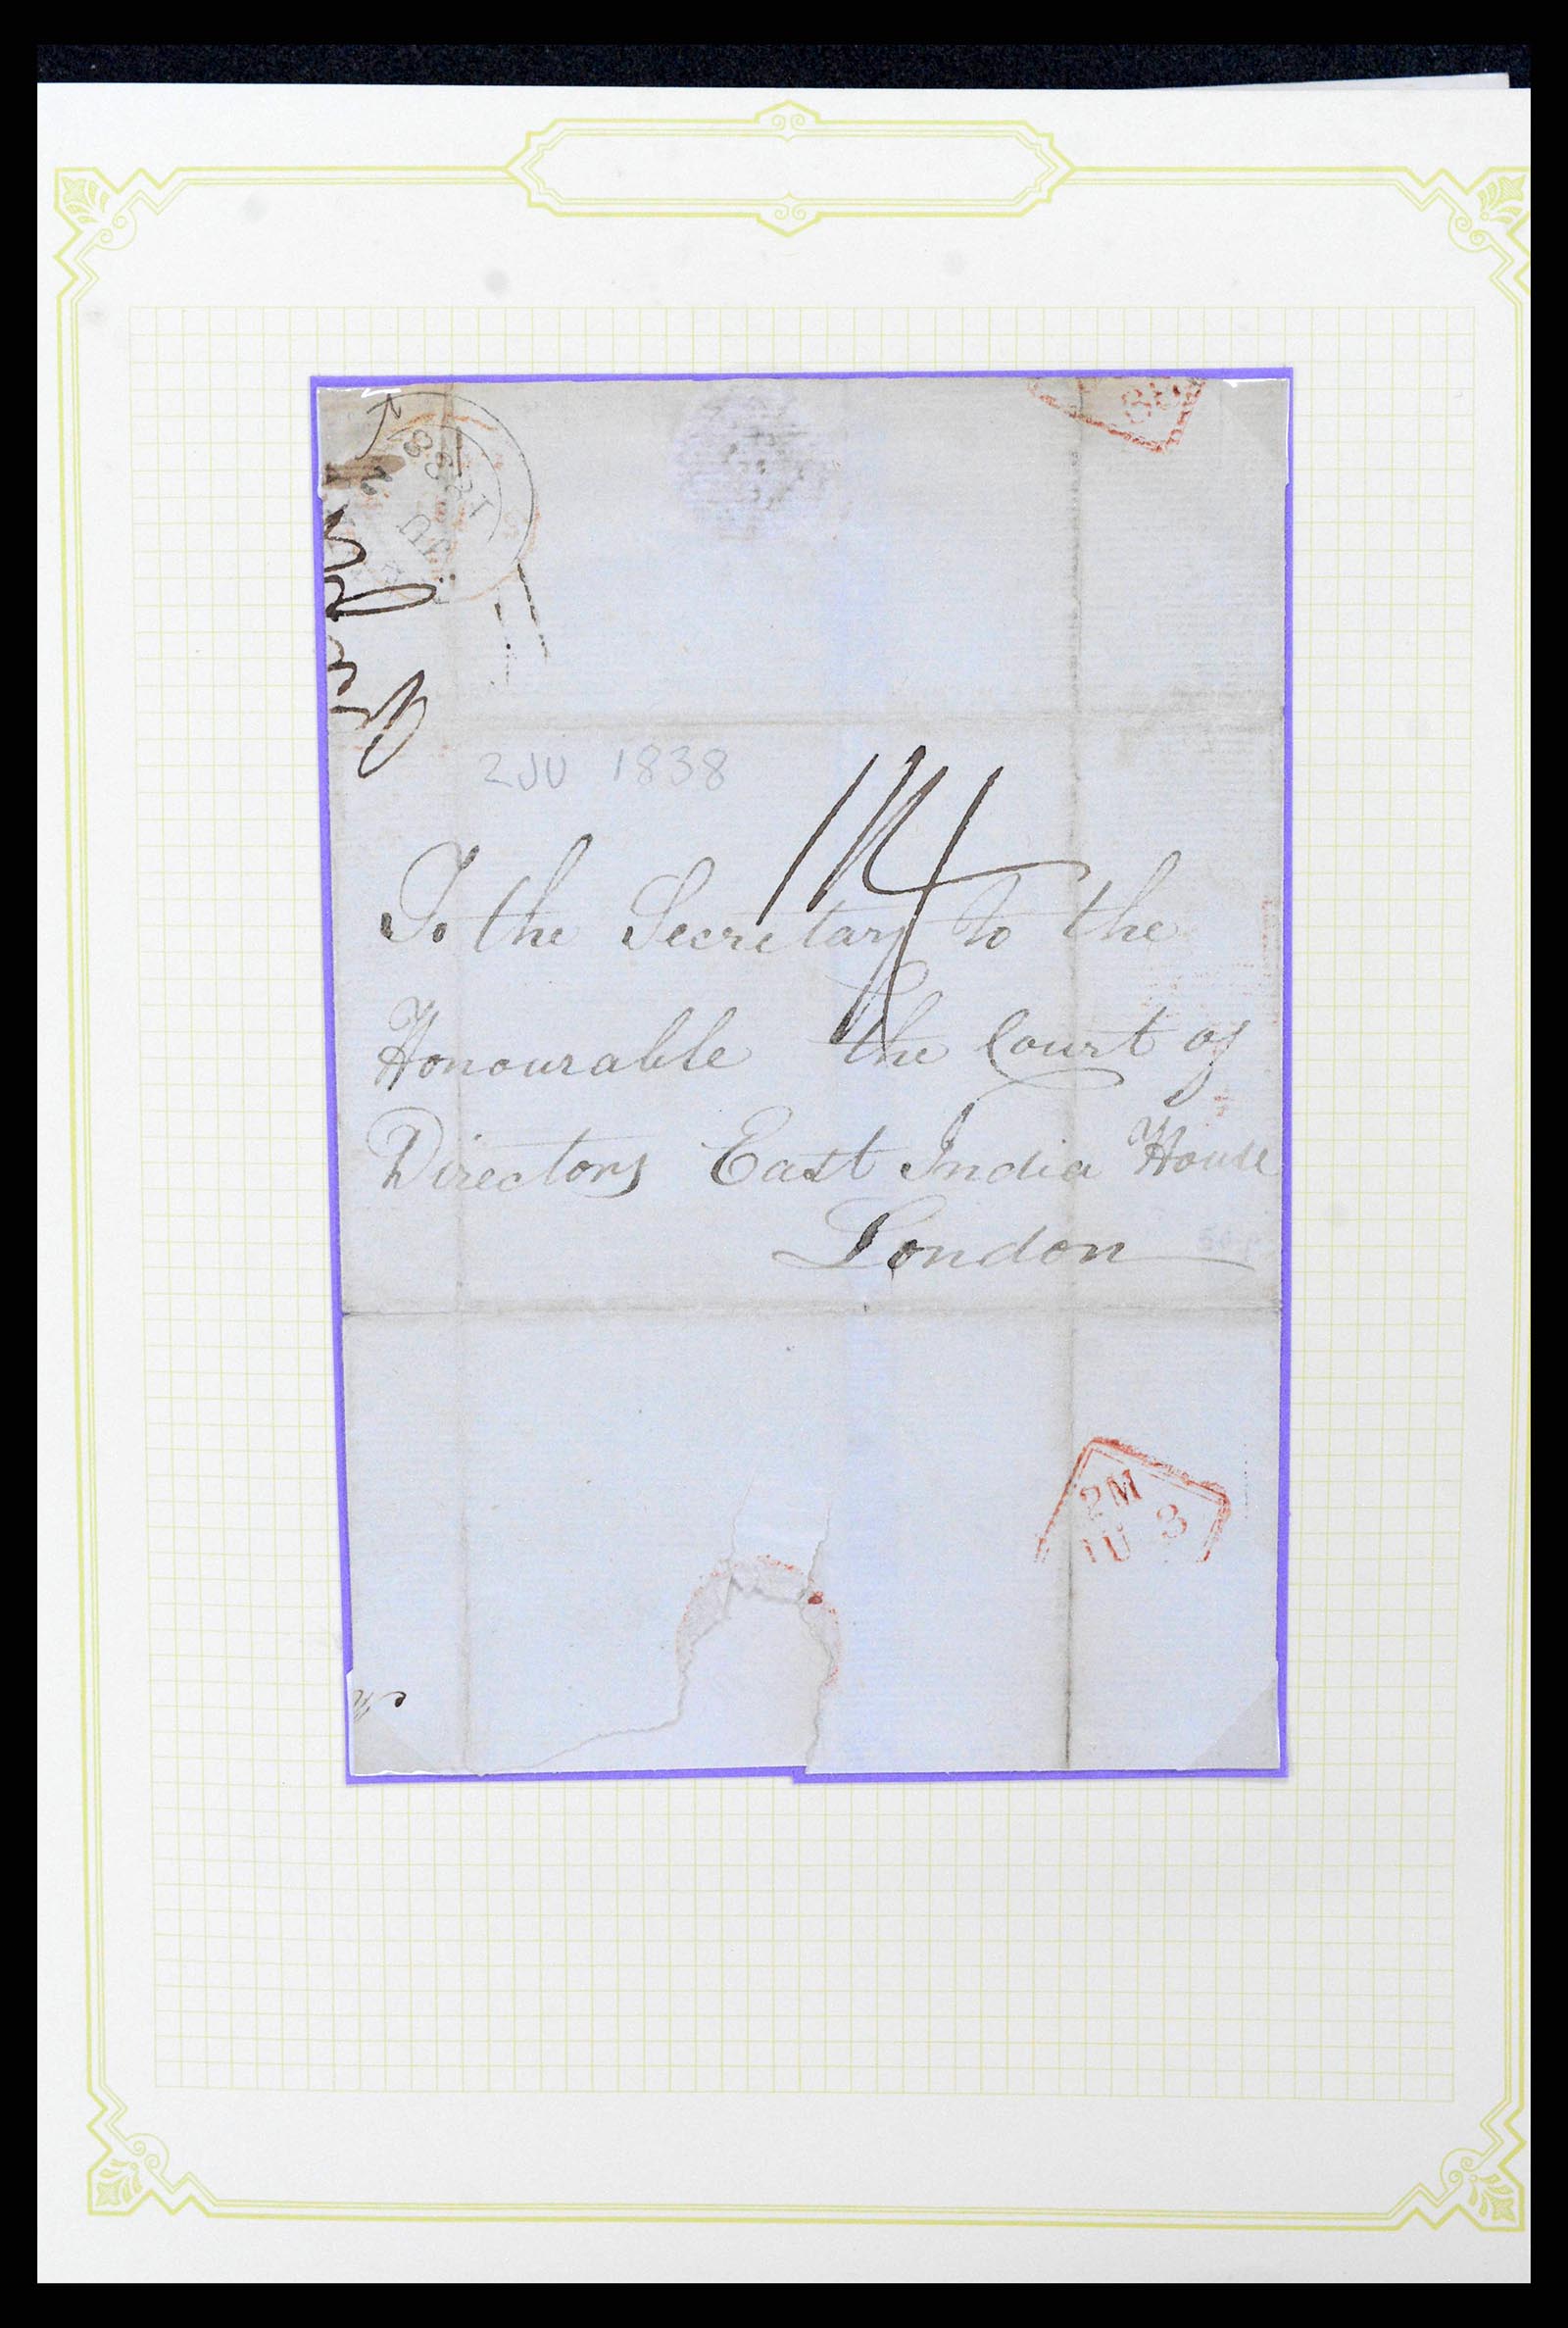 1838
2
JU
2 JU 1838
1/4
To the Secretary to the
Honourable the Court of
Directors East India House
London
2PM
JU 3